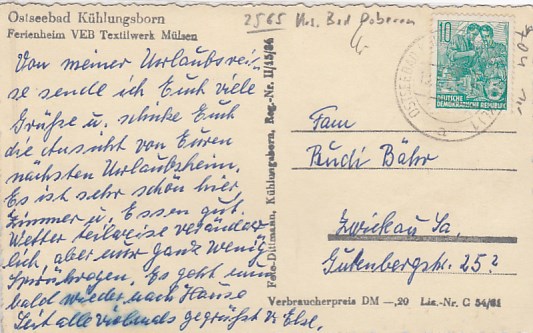 Ostseebad Kühlungsborn
Ferienheim VEB Textilwerk Mülsen
2565 Krs. Bad Doberan
Von meiner Urlaubsrei-
se sende ich Euch viele
Grüße u. schicke Euch
die Ansicht von Euren
nächsten Urlaubsheim.
Es ist sehr schön hier,
Zimmer u. Essen gut.
Wetter teilweise veränder-
lich, aber nur ganz wenig
Sprühregen. Es geht nun
bald wieder nach Hause
Seit alle vielmals gegrüßt v. Else.
Foto-Dittmann, Kühlungsborn, Reg.-Nr. II/15/84
10
DEUTSCHE
DEMOKRATISCHE REPUBLIK
OSTSEEBAD
a
Fam
Rudi Bähr
Zwickau Sa.
Gutenbergstr. 25?
Verbraucherpreis DM —,20 Lis.-Nr. C 54/61